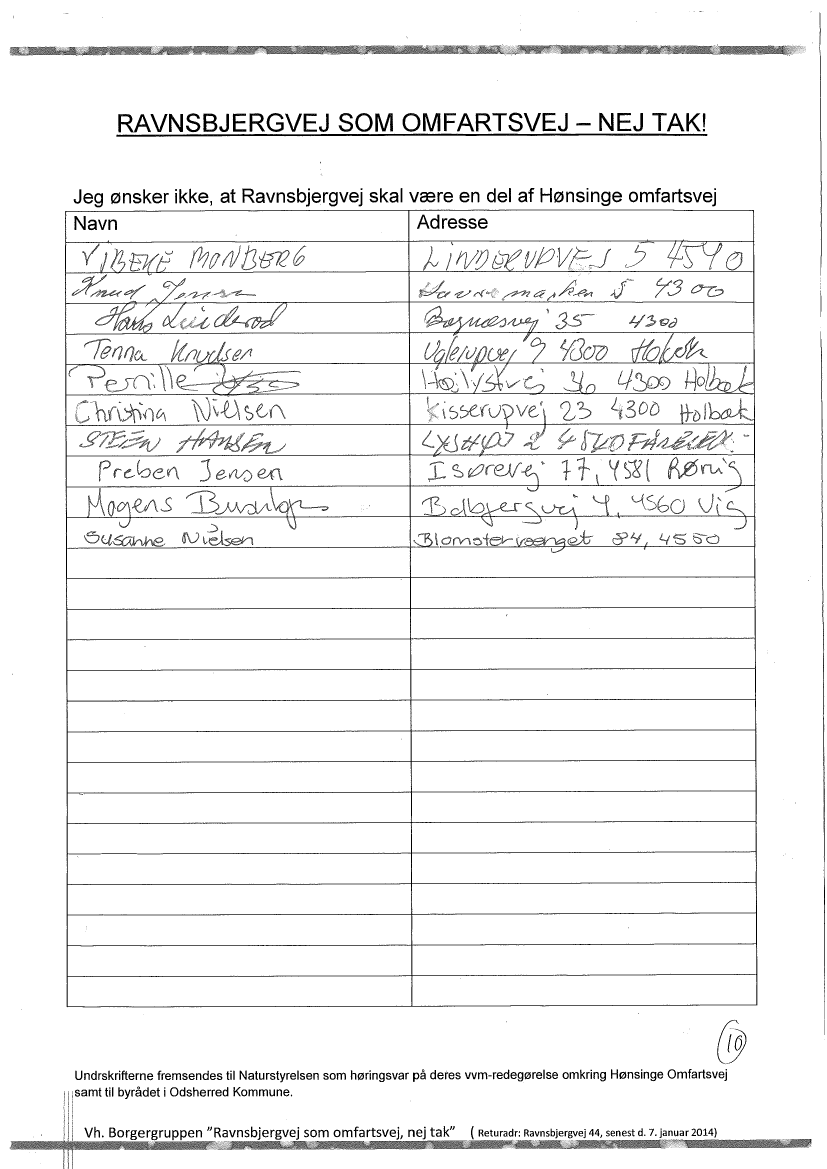 RAVNSBJERGVEJ SOM OMFARTSVEJ – NEJ TAK!
Jeg ønsker ikke, at Ravnsbjergvej skal være en del af Hønsinge omfartsvej
Navn Adresse
VIBEKE MONBERG LINDERUPVEJ 5 4540
Knud Jensen marken 5 4300
Hans Linderod 35 4300
Tenna Knudsen Uglerupvej 9 4300 Holbæk
Pernille 36 4300 Holbæk
Christina Nielsen Kisserupvej 23 4300 Holbæk
STEEN HANSEN LYSHØJ 2 4540 FÅREVEJLE
Preben Jensen Isørevej 77, 4581 Rørvig
Mogens Bolbjergvej 4, 4560 Vig
Susanne Nielsen Blomstervænget 84, 4550
10
Undrskrifterne fremsendes til Naturstyrelsen som høringsvar på deres vvm-redegørelse omkring Hønsinge Omfartsvej
samt til byrådet i Odsherred Kommune.
Vh. Borgergruppen "Ravnsbjergvej som omfartsvej, nej tak" ( Returadr: Ravnsbjergvej 44, senest d. 7. januar 2014)